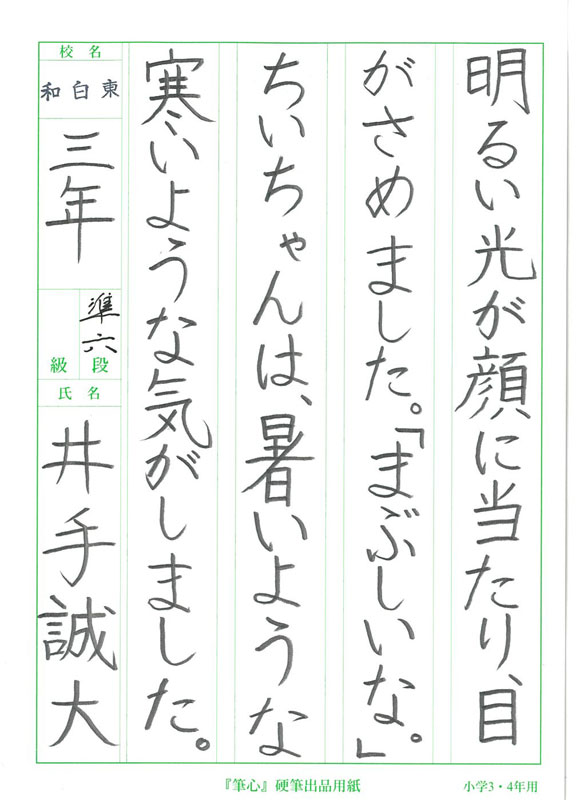 明るい光が顔に当たり、目
がさめました。「まぶしいな。」
ちいちゃんは、暑いような
寒いような気がしました。
校名
和白東
三年
準六
級段
氏名
井手誠大
『筆心』硬筆出品用紙
小学3・4年用